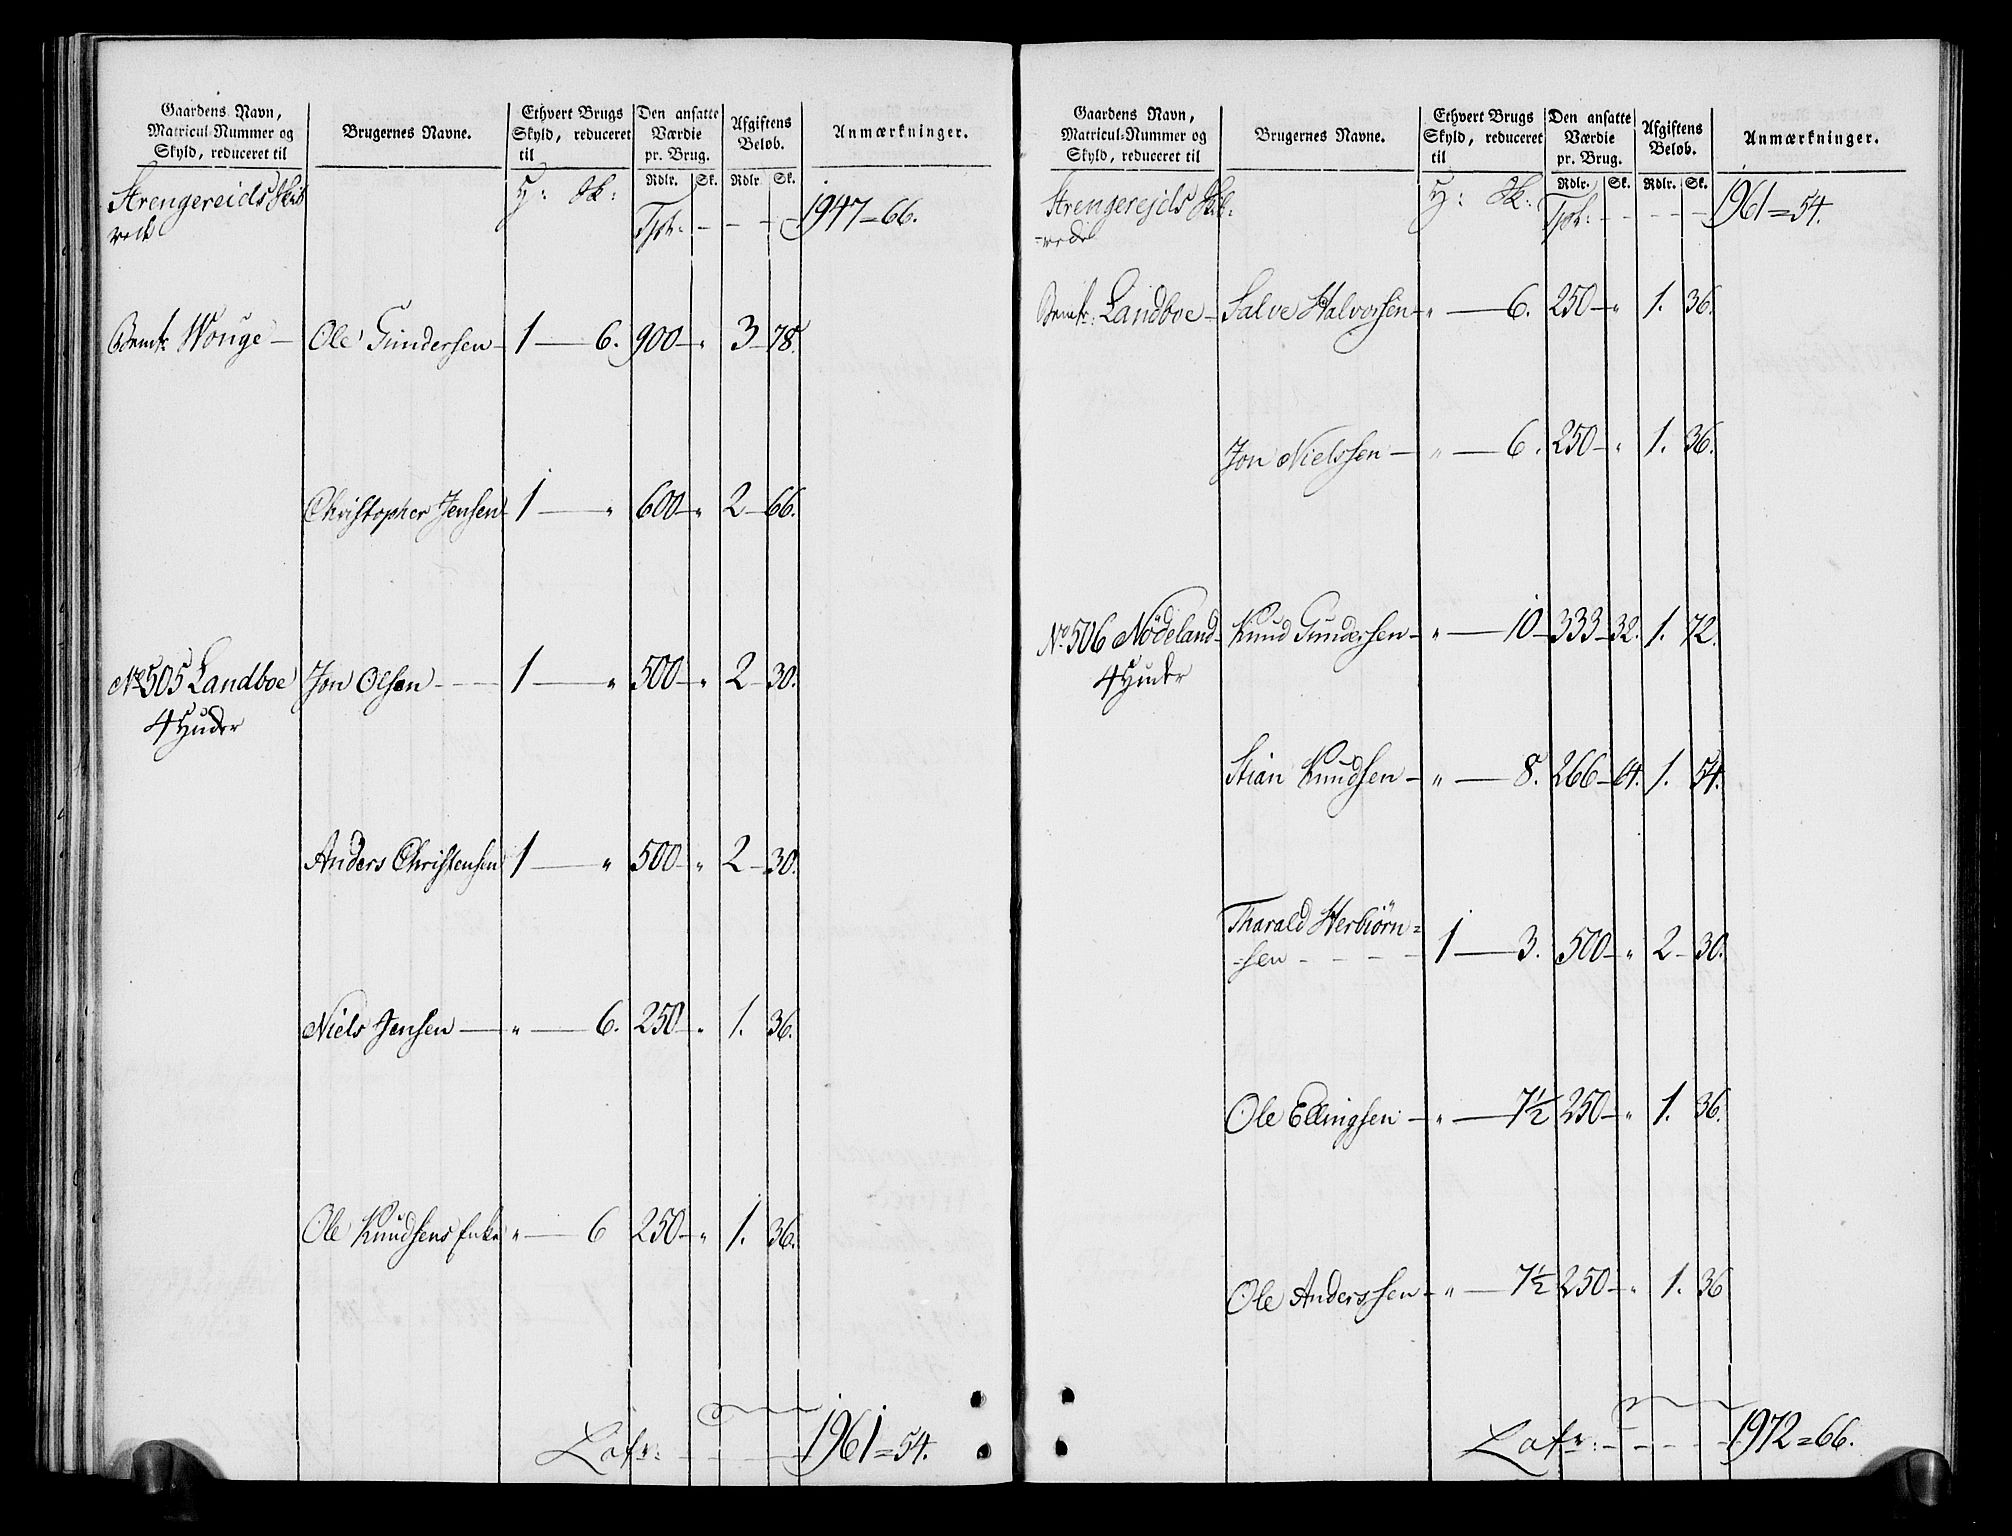 Gaardens Navn,
Matricul-Nummer og
Skyld, reduceret til
Brugernes Navne.
Ethvert Brugs
Skyld, reduceret
til
Den ansatte
Værdie
pr. Brug.
Rdlr. Sk.
Afgiftens
Beløb.
Rdlr. Sk.
Anmærkninger.
Strengereids Skib
rede
H: Sk:
Tpt: - - - 1947=66.
Bemte Wouge — Ole Gundersen — 1 — 6. 900 — " 3 — 78.
Christopher Jensen 1 — " 600 — " 2 — 66.
No 505 Landboe Jon Olsen — 1 — " 500 — " 2 — 30.
4 Huder
Anders Christensen 1 — " 500 — " 2 — 30.
Niels Jensen — " — 6. 250 — " 1. 36.
Ole Knudsens Enke " — 6 250 — " 1. 36.
Latr: - - - 1961=54.
Gaardens Navn,
Matricul-Nummer og
Skyld, reduceret til
Brugernes Navne.
Ethvert Brugs
Skyld, reduceret
til
Den ansatte
Værdie
pr. Brug.
Rdlr. Sk.
Afgiftens
Beløb.
Rdlr. Sk.
Anmærkninger.
Strengerejds Skib:
-rede
H: Sk:
Tpt: - - - - 1961=54.
Bemte: Landboe — Salve Halvorsen — " — 6. 250 — " 1. 36.
Jon Nielssen — " — 6. 250 — " 1. 36.
No 506 Nödeland — Knud Gunderssen — " — 10 — 333 — 32. 1. 72.
4 Huder
Stian Knudsen — " — 8. 266 — 64. 1. 54.
Tharald Herbiörn=
-sen - - - - 1 — 3. 500 — " 2 — 30.
Ole Ellingsen — " — 7½ 250 — " 1. 36.
Ole Anderssen — " — 7½ 250 — " 1. 36
Latr: - - - - 1972=66.